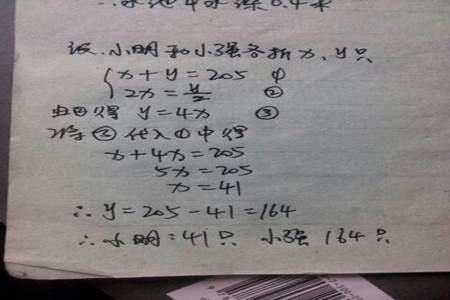 ∴水池中水深0.4米
设小明和小强各折x、y只
{x+y=205 ①
2x=y/2 ②
由②得 y=4x ③
将③代入①中得
x+4x=205
5x=205
x=41
∴y=205-41=164
∴小明:41只 小强164只